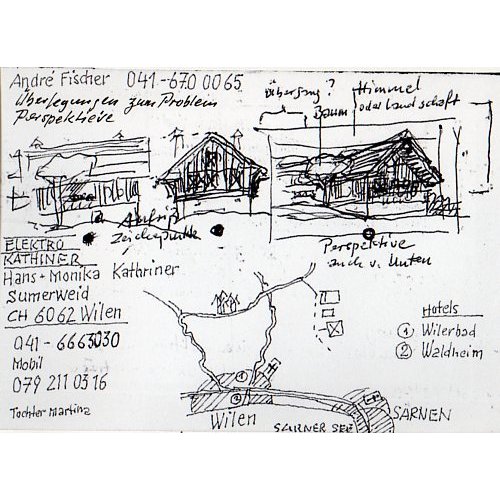 André Fischer 041-670 00 65
Überlegungen zum Problem
Perspektieve
Übergang?
Himmel
oder Landschaft
Baum
Aufriß
Zeichepunkte
Perspektive
auch v. Unten
ELEKTRO
KATHINER
Hans + Monika Kathriner
Sumerweid
CH 6062 Wilen
041 - 6663030
Mobil
079 211 03 16
Tochter Martina
Hotels
① Wilerbad
② Waldheim
①
②
Wilen
SARNEN
SARNER SEE